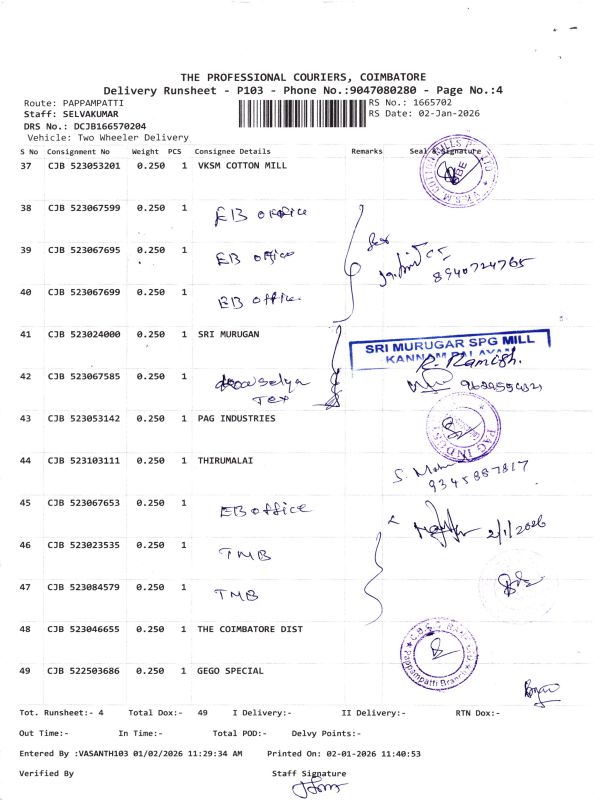 THE PROFESSIONAL COURIERS, COIMBATORE
Delivery Runsheet - P103 - Phone No.:9047080280 - Page No.:4
Route: PAPPAMPATTI
RS No.: 1665702
Staff: SELVAKUMAR
RS Date: 02-Jan-2026
DRS No.: DCJB166570204
Vehicle: Two Wheeler Delivery
S No Consignment No Weight PCS Consignee Details Remarks Seal & Signature
37 CJB 523053201 0.250 1 VKSM COTTON MILL
38 CJB 523067599 0.250 1 EB office
39 CJB 523067695 0.250 1 EB office
8940724765
40 CJB 523067699 0.250 1 EB office
41 CJB 523024000 0.250 1 SRI MURUGAN
SRI MURUGAR SPG MILL
KANNAMPALAYAM
R. Ramesh.
42 CJB 523067585 0.250 1
Tex
43 CJB 523053142 0.250 1 PAG INDUSTRIES
44 CJB 523103111 0.250 1 THIRUMALAI
9345887817
45 CJB 523067653 0.250 1 EB office
2/1/2026
46 CJB 523023535 0.250 1 TMB
47 CJB 523084579 0.250 1 TMB
48 CJB 523046655 0.250 1 THE COIMBATORE DIST
Pappampatti Branch
49 CJB 522503686 0.250 1 GEGO SPECIAL
Tot. Runsheet:- 4 Total Dox:- 49 I Delivery:- II Delivery:- RTN Dox:-
Out Time:- In Time:- Total POD:- Delvy Points:-
Entered By :VASANTH103 01/02/2026 11:29:34 AM Printed On: 02-01-2026 11:40:53
Verified By Staff Signature